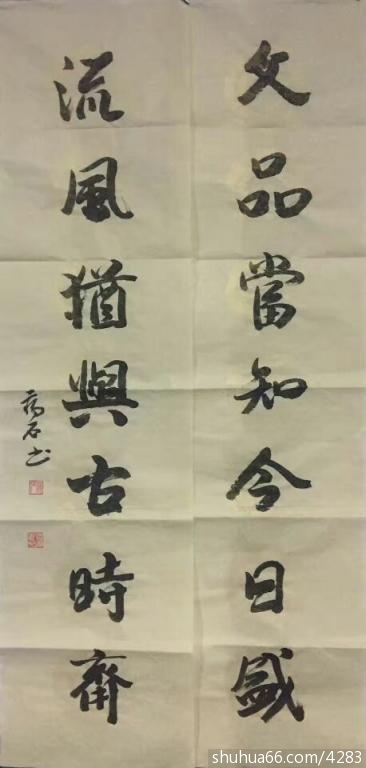 文品當知今日盛
流風猶與古時齊
石书
shuhua66.com/4283